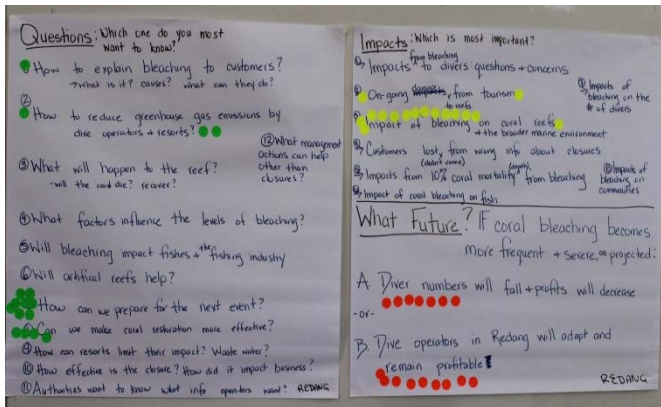 Questions: Which one do you most
want to know?
① How to explain bleaching to customers?
→ what is it? causes? what can they do?
②
How to reduce greenhouse gas emissions by
dive operators + resorts?
⑫ What management
actions can help
other than
closures?
③ What will happen to the reef?
- will the coral die? recover?
④ What factors influence the levels of bleaching?
⑤ Will bleaching impact fishes + the fishing industry
⑥ Will artifical reefs help?
How can we prepare for the next event?
Can we make coral restoration more effective?
⑨ How can resorts limit their impact? Waste water?
⑩ How effective is the closure? How did it impact business?
⑪ Authorities want to know what info operators want?
REDANG
Impacts: Which is most important?
from bleaching
Impacts to divers: questions + concerns
On-going from tourism
to reefs
Impact of bleaching on coral reefs
+ the broader marine environment
Customers lost from wrong info about closures
(didn't come)
Impacts from 10% coral mortality from bleaching
Impact of coral bleaching on fish
Impacts of
bleaching on the
# of divers
Impacts of
bleaching on
communities
What Future? If coral bleaching becomes
more frequent + severe, as projected:
A. Diver numbers will fall + profits will decrease
-or-
B. Dive operators in Redang will adapt and
remain profitable
REDANG